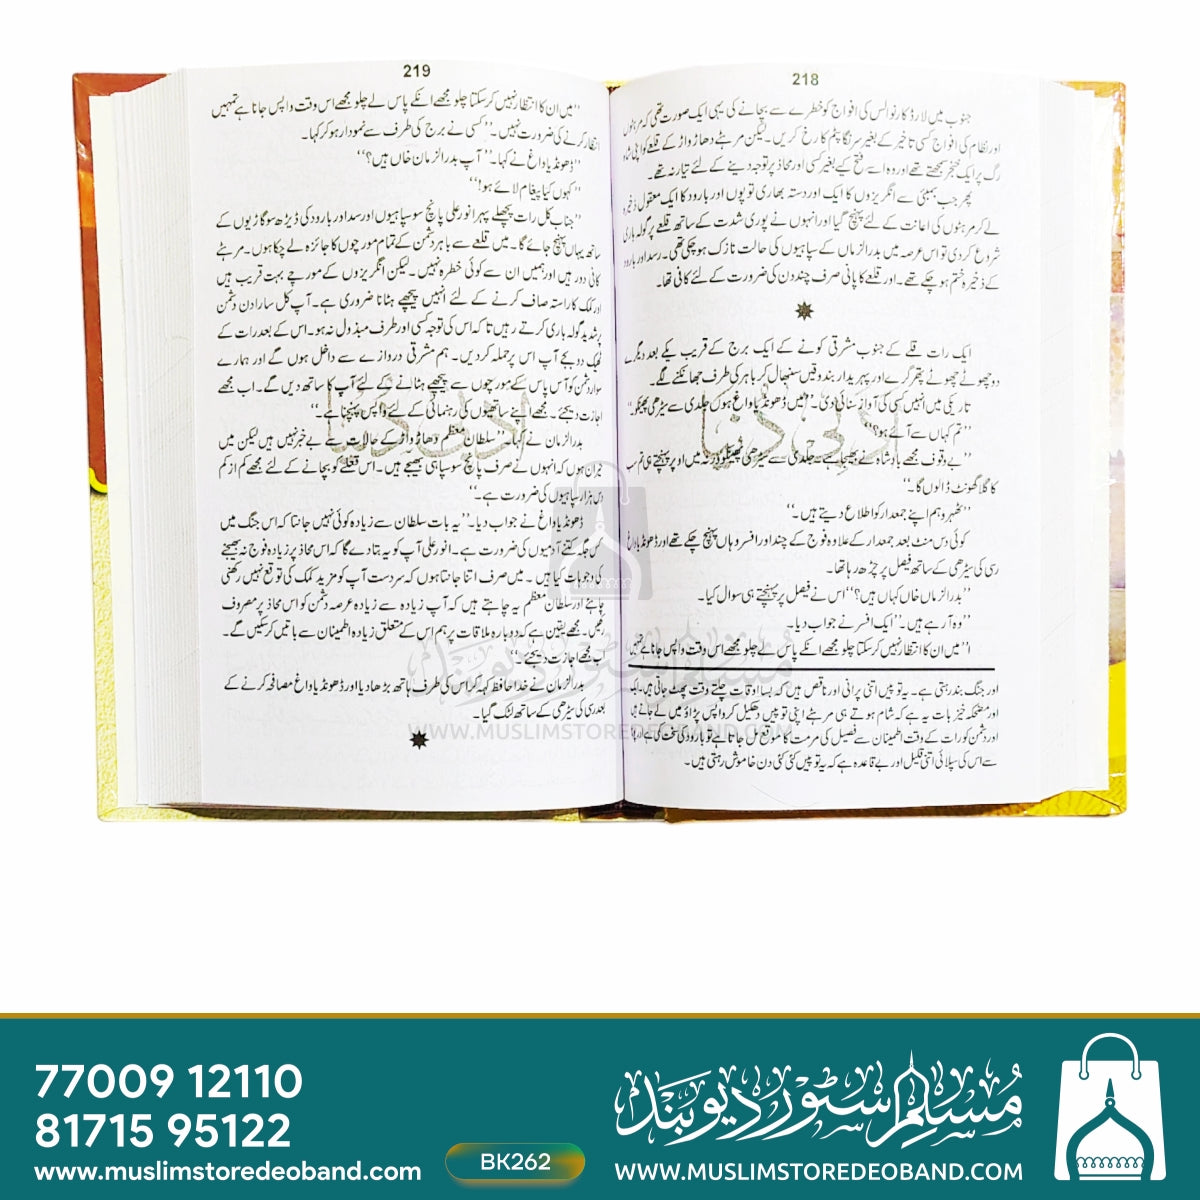 218
جنوب میں لارڈ کارنوالس کی افواج کو خطرے سے بچانے کی یہی ایک صورت تھی کہ مرہٹوں
اور نظام کی افواج کسی تاخیر کے بغیر سرنگا پٹم کا رخ کریں۔ لیکن مرہٹے دھاڑواڑ کے قلعے کو اپنی شاہ
رگ پر ایک خنجر سمجھتے تھے اور وہ اسے فتح کیے بغیر کسی اور محاذ پر توجہ دینے کے لئے تیار نہ تھے۔
پھر جب بمبئی سے انگریزوں کا ایک اور دستہ بھاری توپوں اور بارود کا ایک معقول ذخیرہ
لے کر مرہٹوں کی اعانت کے لئے پہنچ گیا اور انہوں نے پوری شدت کے ساتھ قلعے پر گولہ باری
شروع کر دی تو اس عرصہ میں بدرالزماں کے سپاہیوں کی حالت نازک ہو چکی تھی۔ رسد اور بارود
کے ذخیرہ ختم ہو چکے تھے۔ اور قلعے کا پانی صرف چند دن کی ضرورت کے لئے کافی تھا۔
ایک رات قلے کے جنوب مشرقی کونے کے ایک برج کے قریب یکے بعد دیگرے
دو چھوٹے چھوٹے پتھر گرے اور پہریدار بندوقیں سنبھال کر باہر کی طرف جھانکنے لگے۔
تاریکی میں انہیں کسی کی آواز سنائی دی۔ ''میں ڈھونڈیا واغ ہوں جلدی سے سیڑھی پھینکو۔''
''تم کہاں سے آئے ہو؟''
''بے وقوف مجھے بادشاہ نے بھیجا ہے۔ جلدی سے سیڑھی پھینکو ورنہ میں اوپر پہنچتے ہی تم سب
کا گلا گھونٹ ڈالوں گا۔''
''ٹھہرو ہم اپنے جمعدار کو اطلاع دیتے ہیں۔''
کوئی دس منٹ بعد جمعدار کے علاوہ فوج کے چند اور افسر وہاں پہنچ چکے تھے اور ڈھونڈیا واغ
رسی کی سیڑھی کے ساتھ فصیل پر چڑھ رہا تھا۔
''بدرالزماں خاں کہاں ہیں؟'' اس نے فصیل پر پہنچتے ہی سوال کیا۔
''وہ آ رہے ہیں۔'' ایک افسر نے جواب دیا۔
''میں ان کا انتظار نہیں کر سکتا چلو مجھے انکے پاس لے چلو مجھے اس وقت واپس جانا ہے تمہیں
اور جنگ بند رہتی ہے۔ یہ توپیں اتنی پرانی اور ناقص ہیں کہ بسا اوقات چلتے وقت پھٹ جاتی ہیں۔ ایک
اور مضحکہ خیز بات یہ ہے کہ شام ہوتے ہی مرہٹے اپنی توپیں دھکیل کر واپس پڑاؤ میں لے جاتے ہیں
اور دشمن کو رات کے وقت اطمینان سے فصیل کی مرمت کا موقع مل جاتا ہے تو بارود کی سخت کمی ہے اور
سے اس کی سپلائی اتنی قلیل اور بے قاعدہ ہے کہ یہ توپیں کئی کئی دن خاموش رہتی ہیں۔
219
''میں ان کا انتظار نہیں کر سکتا چلو مجھے انکے پاس لے چلو مجھے اس وقت واپس جانا ہے تمہیں
انتظار کرنے کی ضرورت نہیں۔'' کسی نے برج کی طرف سے نمودار ہو کر کہا۔
ڈھونڈیا واغ نے کہا۔ ''آپ بدرالزمان خاں ہیں؟''
''کہوں کیا پیغام لائے ہو!''
''جناب کل رات پچھلے پہر انور علی پانچ سو سپاہیوں اور رسد اور بارود کی ڈیڑھ سو گاڑیوں کے
ساتھ یہاں پہنچ جائے گا۔ میں قلعے سے باہر دشمن کے تمام مورچوں کا جائزہ لے چکا ہوں۔ مرہٹے
کافی دور ہیں اور ہمیں ان سے کوئی خطرہ نہیں۔ لیکن انگریزوں کے مورچے بہت قریب ہیں
اور کمک کا راستہ صاف کرنے کے لئے انہیں پیچھے ہٹانا ضروری ہے۔ آپ کل سارا دن دشمن
پر شدید گولہ باری کرتے رہیں تا کہ اس کی توجہ کسی اور طرف مبذول نہ ہو۔ اس کے بعد رات کے
ٹھیک دو بجے آپ اس پر حملہ کر دیں۔ ہم مشرقی دروازے سے داخل ہوں گے اور ہمارے
سوار دشمن کو آس پاس کے مورچوں سے پیچھے ہٹانے کے لئے آپ کا ساتھ دیں گے۔ اب مجھے
اجازت دیجئے۔ مجھے اپنے ساتھیوں کی رہنمائی کے لئے واپس پہنچنا ہے۔''
بدرالزمان نے کہا۔ ''سلطان معظم دھاڑواڑ کے حالات سے بے خبر نہیں ہیں لیکن میں
حیران ہوں کہ انہوں نے صرف پانچ سو سپاہی بھیجے ہیں۔ اس قلعے کو بچانے کے لئے مجھے کم از کم
دس ہزار سپاہیوں کی ضرورت ہے۔''
ڈھونڈیا واغ نے جواب دیا۔ ''یہ بات سلطان سے زیادہ کوئی نہیں جانتا کہ اس جنگ میں
کس جگہ کتنے آدمیوں کی ضرورت ہے۔ انور علی آپ کو یہ بتا دے گا کہ اس محاذ پر زیادہ فوج نہ بھیجنے
کی وجوہات کیا ہیں۔ میں صرف اتنا جانتا ہوں کہ سر دست آپ کو مزید کمک کی توقع نہیں رکھنی
چاہئے اور سلطان معظم یہ چاہتے ہیں کہ آپ زیادہ سے زیادہ عرصہ دشمن کو اس محاذ پر مصروف
رکھیں۔ مجھے یقین ہے کہ دوبارہ ملاقات پر ہم اس کے متعلق زیادہ اطمینان سے باتیں کر سکیں گے۔
اب مجھے اجازت دیجئے۔''
بدرالزمان نے خدا حافظ کہہ کر اس کی طرف ہاتھ بڑھا دیا اور ڈھونڈیا واغ مصافحہ کرنے کے
بعد رسی کی سیڑھی کے ساتھ لٹک گیا۔
ادبی دنیا
ادبی دنیا
مسلم سٹور دیوبند
WWW.MUSLIMSTOREDEOBAND.COM
77009 12110
81715 95122
www.muslimstoredeoband.com
BK262
مسلم سٹور دیوبند
WWW.MUSLIMSTOREDEOBAND.COM